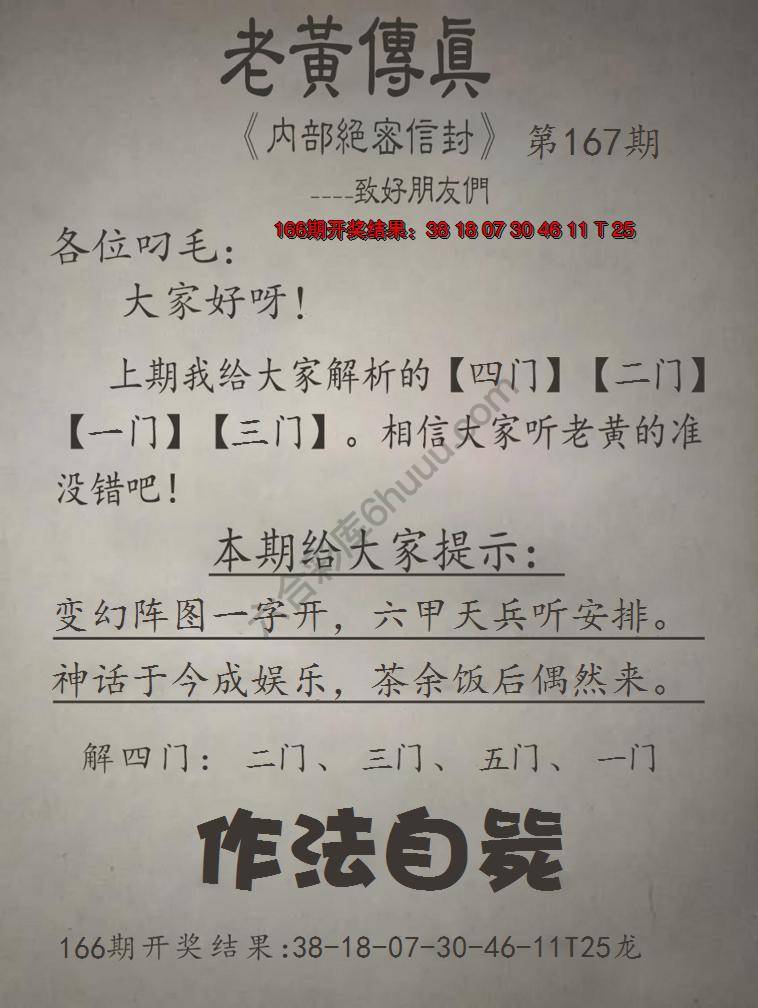 老黃傳眞
《内部絕密信封》 第167期
----致好朋友們
166期开奖结果：38 18 07 30 46 11 T 25
各位叼毛：
大家好呀！
上期我给大家解析的【四门】【二门】
【一门】【三门】。相信大家听老黄的准
没错吧！
本期给大家提示：
变幻阵图一字开，六甲天兵听安排。
神话于今成娱乐，茶余饭后偶然来。
解四门：二门、三门、五门、一门
作法自毙
166期开奖结果:38-18-07-30-46-11T25龙
六合彩库6huuu.com